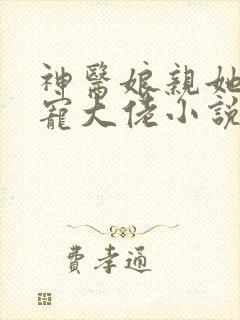 神醫娘親她
寵大佬小說
費孝通